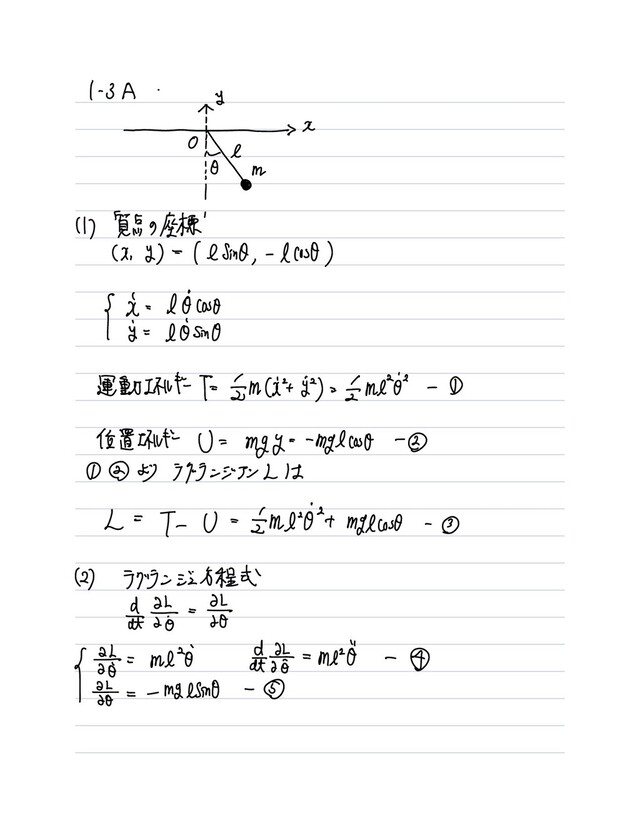 1-3 A
y
x
O
θ
l
m
(1) 質点の座標
(x, y) = (l sinθ, - l cosθ)
ẋ = l θ̇ cosθ
ẏ = l θ̇ sinθ
運動エネルギー T = 1/2 m(ẋ² + ẏ²) = 1/2 ml²θ̇² - ①
位置エネルギー U = mgy = -mgl cosθ - ②
① ② より ラグランジアン L は
L = T - U = 1/2 ml²θ̇² + mgl cosθ - ③
(2) ラグランジュ方程式
d/dt ∂L/∂θ̇ = ∂L/∂θ
∂L/∂θ̇ = ml²θ̇ d/dt ∂L/∂θ̇ = ml²θ̈ - ④
∂L/∂θ = - mg l sinθ - ⑤